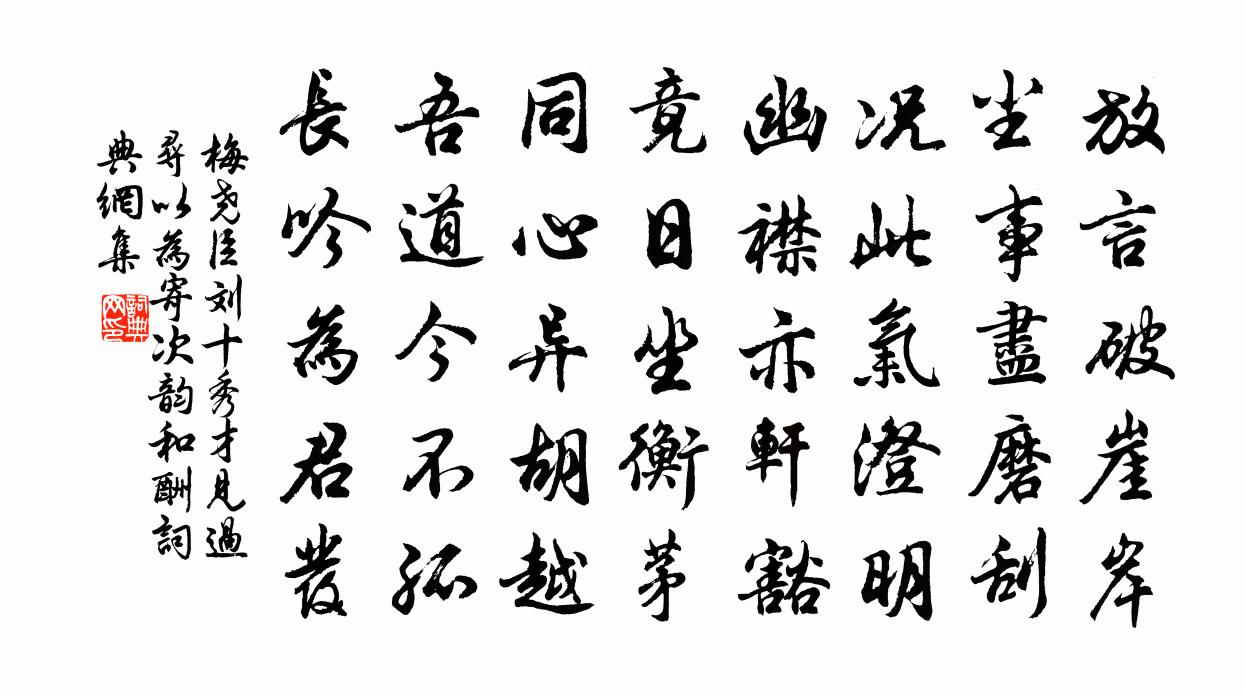 放言破崖岸
尘事盡磨刮
况此氣澄明
幽襟亦軒豁
竟日坐衡茅
同心异胡越
吾道今不孤
長吟為君發
梅尧臣刘十秀才見過
尋以為寄次韵和酬詞
典網集
詞典
网印